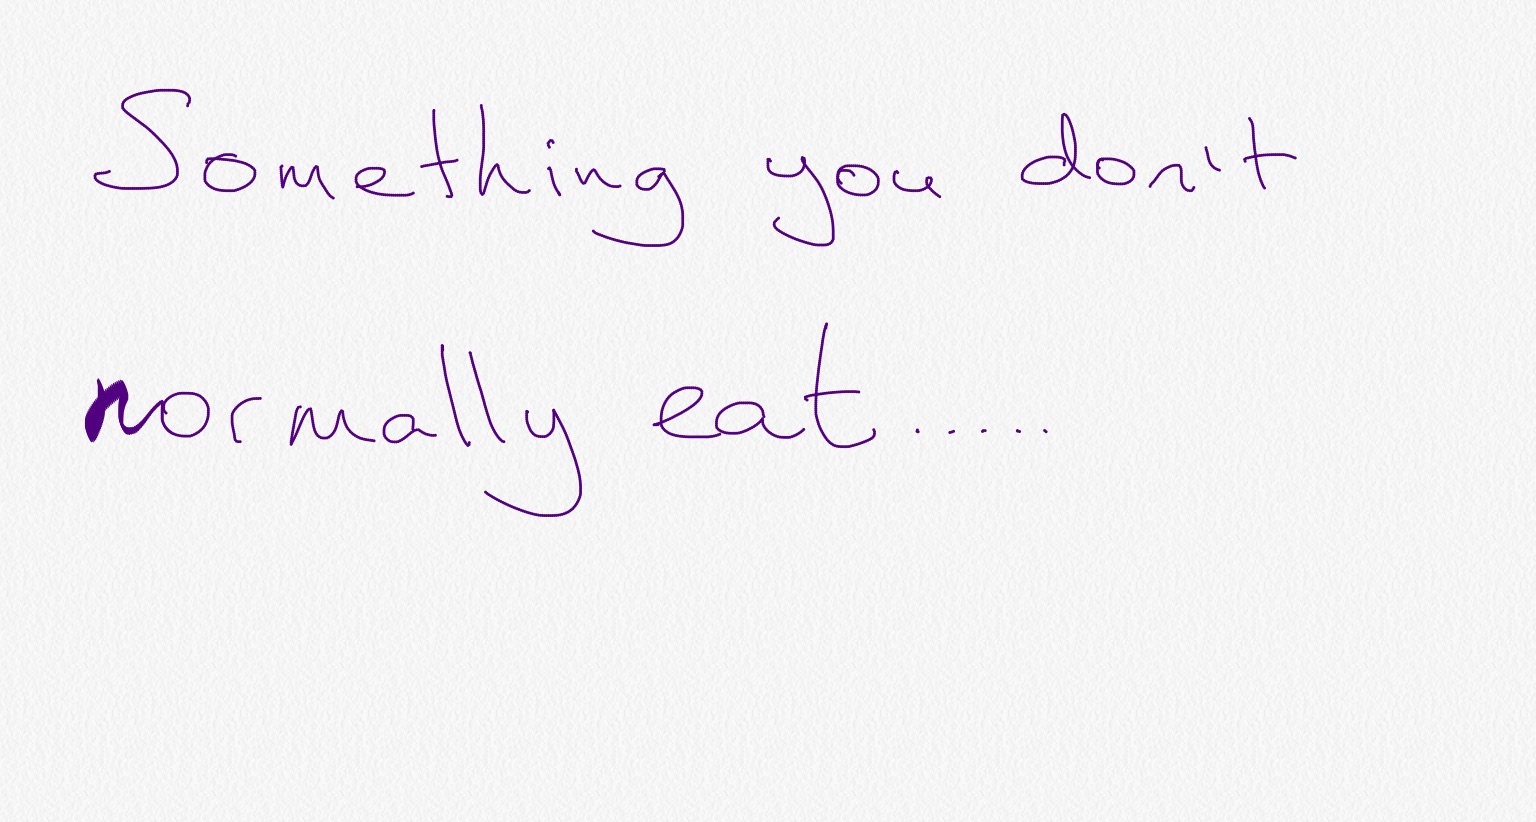 Something you don't
normally eat.....